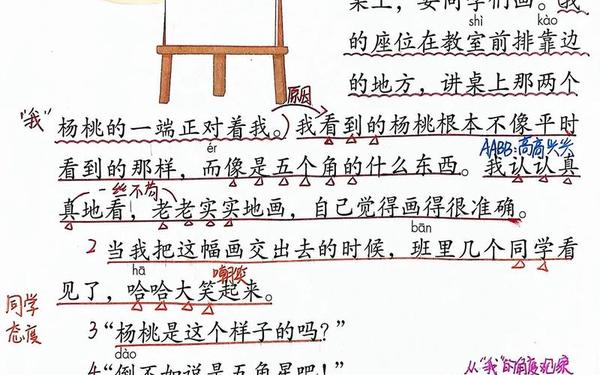 桌上，要同学们画。我
shì kào
的座位在教室前排靠边
的地方，讲桌上那两个
原因
"我" 杨桃的一端正对着我。）我看到的杨桃根本不像平时
ér
看到的那样，而像是五个角的什么东西。我认认真
AABB：高高兴兴
一丝不苟
真地看，老老实实地画，自己觉得画得很准确。
bān
2 当我把这幅画交出去的时候，班里几个同学看
hā 嘲笑
见了，哈哈大笑起来。
同学
态度
3 "杨桃是这个样子的吗？"
dào
4 "倒不如说是五角星吧！"
从"我"的角度观察